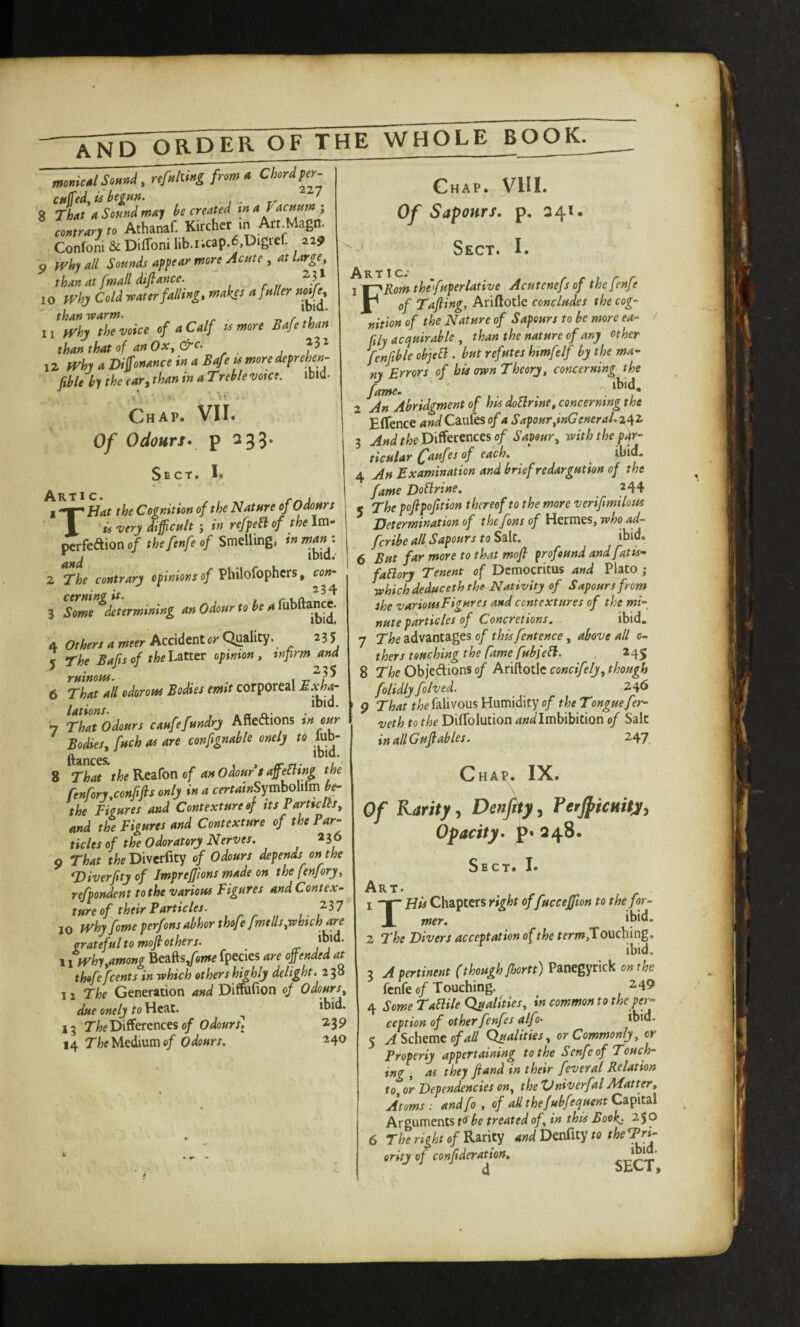 AND ORDER OF THE WHOLE BOOK.
monical Sound, resulting from a Chord per-
cussed, is begun. 227
8 That a Sound may be created in a Vacuum ;
contrary to Athanas. Kircher in Art.Magn.
Consoni & Dissoni lib.1.cap.6.Digres. 229
9 Why all Sounds appear more Acute , at large,
than at small distance. 231
10 Why Cold water falling, makes a fuller noise,
than warm. ibid.
11 Why the voice of a Calf is more Base than
than that of an Ox, &c. 232
12 Why a Dissonance in a Base is more deprehen-
sible by the ear, than in a Treble voice. ibid.
CHAP. VII.
Of Odours. p 233.
SECT. I.
ARTIC.
1 THat the Cognition of the Nature of Odours
is very difficult ; in respect of the Im-
perfection of the sense of Smelling, in man :
and ibid.
2 The contrary opinions of Philosophers, con-
cerning it. 234
3 Some determining an Odour to be a substance.
ibid.
4 Others a meer Accident or Quality. 235
5 The Basis of the Latter opinion, infirm and
ruinous. 235
6 That all odorous Bodies emit corporeal Exha-
lations. ibid.
7 That Odours cause sundry Affections in our
Bodies, such as are consignable onely to sub-
stances. ibid.
8 That the Reason of an Odour's affecting the
sensory, consists only in a certain Symbolism be-
the Figures and Contexture of its Particles,
and the Figures and Contexture of the Par-
ticles of the Odoratory Nerves. 236
9 That the Diversity of Odours depends on the
Diversity of Impressions made on the sensory,
respondent to the various Figures and Contex-
ture of their Particles. 237
10 Why some persons abhor those smells, which are
grateful to most others. ibid.
11 Why, among Beasts, some species are offended at
those scents in which others highly delight. 238
12 The Generation and Diffusion of Odours,
due onely to Heat. ibid.
13 The Differences of Odours. 239
14 The Medium of Odours. 240
CHAP. VIII.
Of Sapours. p. 241.
SECT. I.
ARTIC.
1 FRom the superlative Acuteness of the sense
of Tasting, Aristotle concludes the cog-
nition of the Nature of Sapours to be more ea-
sily acquirable , than the nature of any other
sensible object . but refutes himself by the ma-
ny Errors of his own Theory, concerning the
same. ibid.
2 An Abridgment of his doctrine, concerning the
Essence and Causes of a Sapour, in General. 242
3 And the Differences of Sapour, with the par-
ticular Causes of each. ibid.
4 An Examination and brief redargution of the
same Doctrine. 244
5 The postposition thereof to the more verisimilous
Determination of the sons of Hermes, who ad-
scribe all Sapours to Salt. ibid.
6 But far more to that most profound and satis-
factory Tenent of Democritus and Plato ;
which deduceth the Nativity of Sapours from
the various Figures and contextures of the mi-
nute particles of Concretions. ibid.
7 The advantages of this sentence , above all o-
thers touching the same subject. 245
8 The Objections of Aristotle concisely, though
solidly solved. 246
9 That the salivous Humidity of the Tongue ser-
veth to the Dissolution and Imbibition of Salt
in all Gustables. 247
CHAP. IX.
Of Rarity, Density, Perspicuity,
Opacity. p. 248.
SECT. I.
ART.
1 THis Chapters right of succession to the for-
mer. ibid.
2 The Divers acceptation of the term, Touching.
ibid.
3 A pertinent (though short) Panegyrick on the
sense of Touching. 249
4 Some Tactile Qualities, in common to the per-
ception of other senses also. ibid.
5 A Scheme of all Qualities, or Commonly, or
Properly appertaining to the Sense of Touch-
ing , as they stand in their several Relation
to, or Dependencies on, the Universal Matter,
Atoms : and so , of all the subsequent Capital
Arguments to be treated of, in this Book. 250
6 The right of Rarity and Density to the Pri-
ority of consideration. ibid.
d SECT,